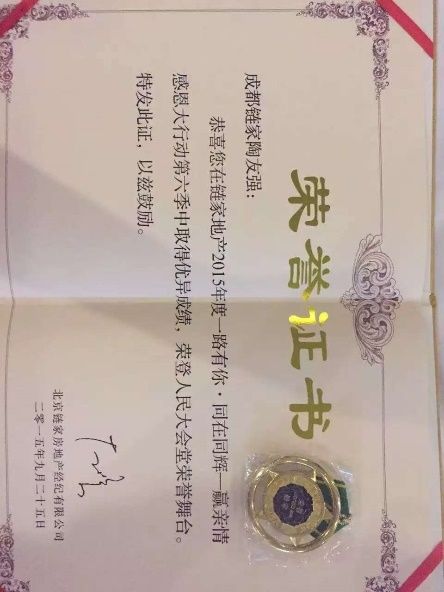 荣誉证书
成都链家陶友强：
恭喜您在链家地产2015年度一路有你·同在同辉—赢亲情
感恩大行动第六季中取得优异成绩，荣登人民大会堂荣誉舞台。
特发此证，以兹鼓励。
北京链家房地产经纪有限公司
二零一五年九月二十五日